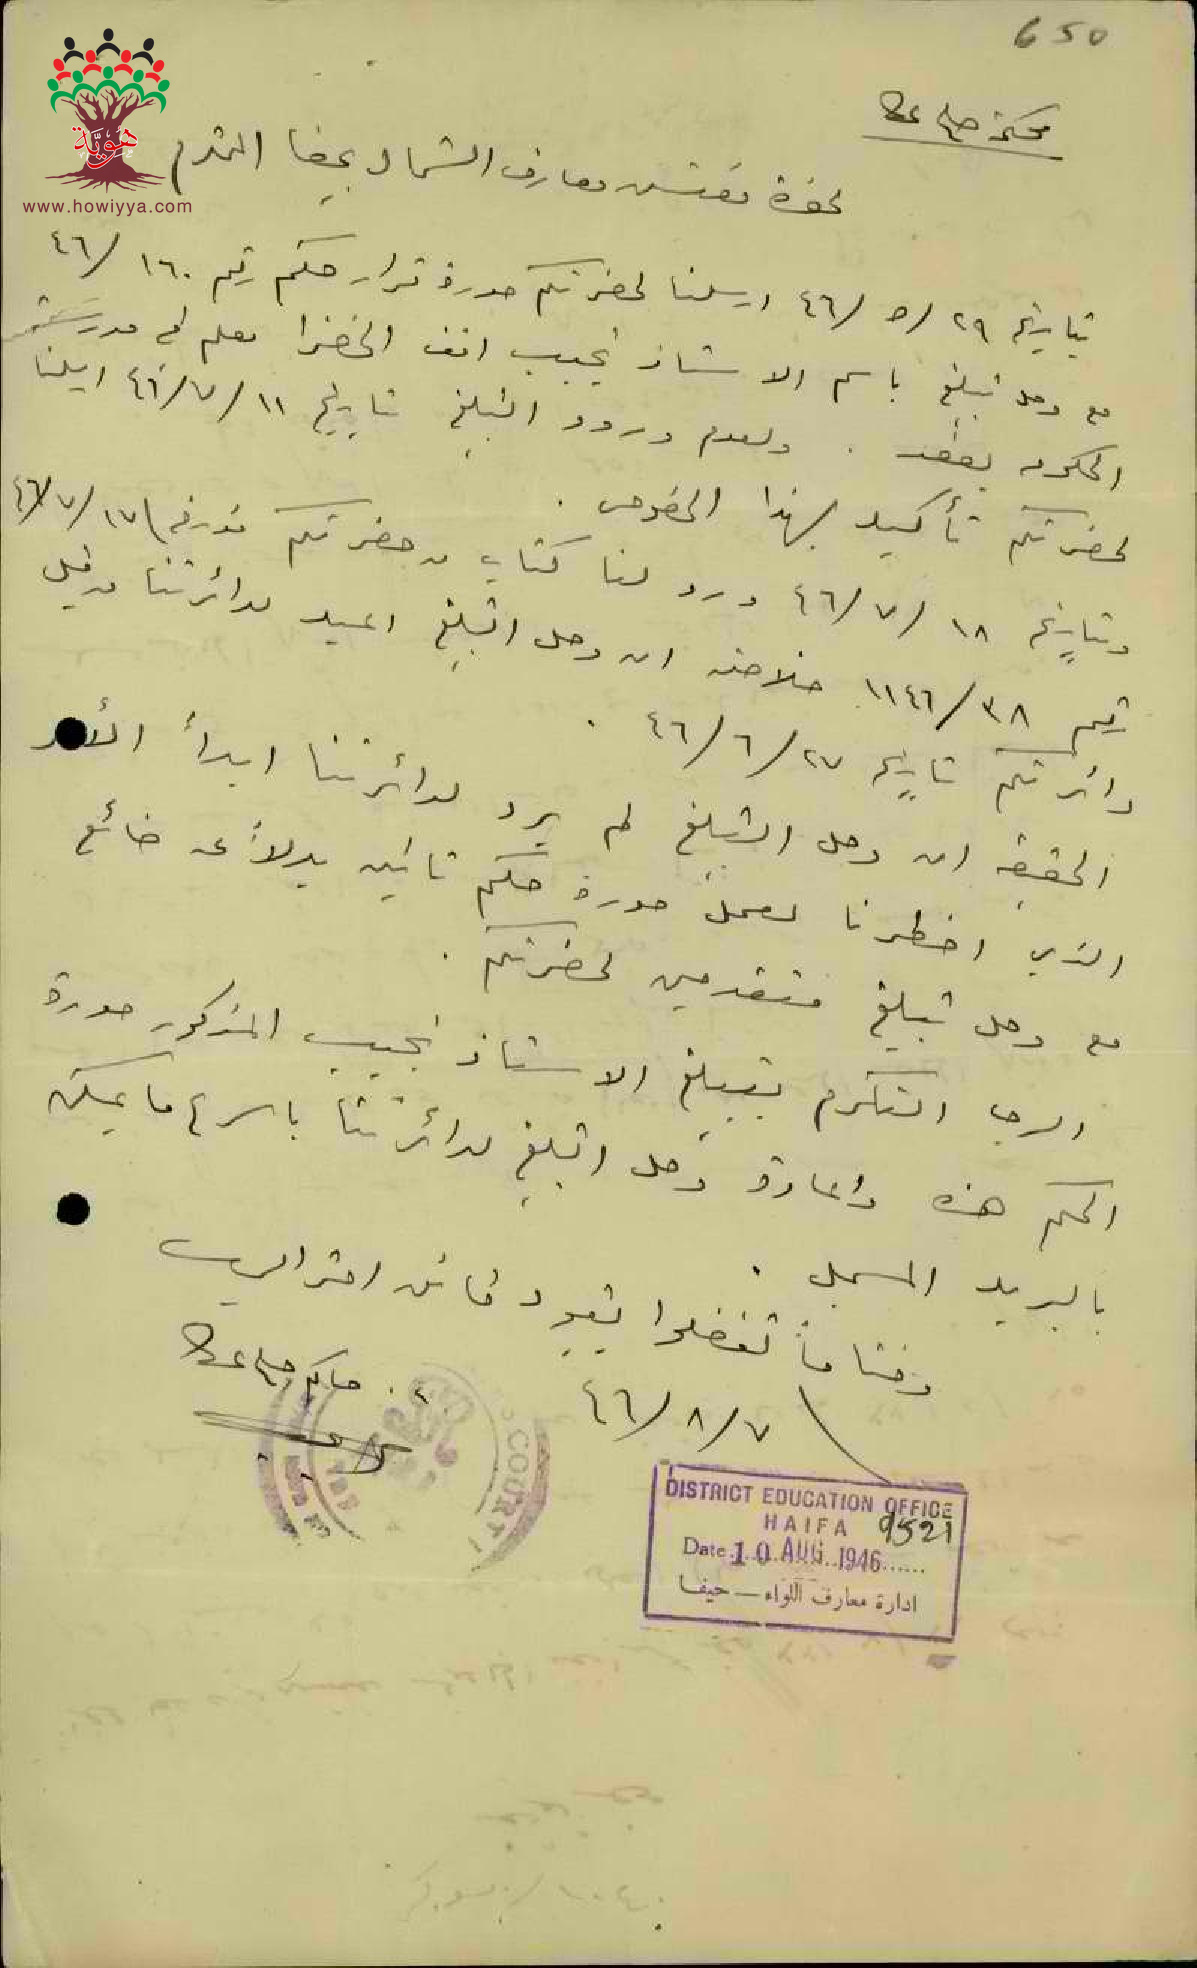 650
هوية
www.howiyya.com
محكمة صلح عكا
لحضرة مفتش معارف الشمال بحيفا المحترم
بتاريخ ٢٩/٥/٤٦ ارسلنا لحضرتكم صورة قرار حكم رقم ١٦٠/٤٦
مع وصل تبليغ باسم الاستاذ نجيب الخضرا معلم في مدرسة
الحكومة بصفد . ولعدم ورود التبليغ تاريخ ١١/٧/٤٦ ارسلنا
لحضرتكم تأكيد بهذا الخصوص .
وبتاريخ ١٨/٧/٤٦ ورد لنا كتاب من حضرتكم مؤرخ ١٧/٧/٤٦
رقم ٣٨/١١٤٦ خلاصته ان وصل التبليغ اعيد لدائرتنا من قبل
دائرتكم تاريخ ٢٧/٦/٤٦ .
الحقيقة ان وصل التبليغ لم يرد لدائرتنا ابدأ الأمر
الذي اضطرنا لعمل صورة حكم ثانية بدلاً عن ضائع
مع وصل تبليغ متقدمين لحضرتكم .
الرجا التكرم بتبليغ الاستاذ نجيب المذكور صورة
الحكم هذه واعادة وصل التبليغ لدائرتنا باسرع ما يمكن
بالبريد المسجل .
وختاماً تفضلوا بقبول فائق احترامي
٧/٨/٤٦
حاكم صلح عكا
COURT
DISTRICT EDUCATION OFFICE
HAIFA 9521
Date 10 AUG 1946
ادارة معارف اللواء — حيفا